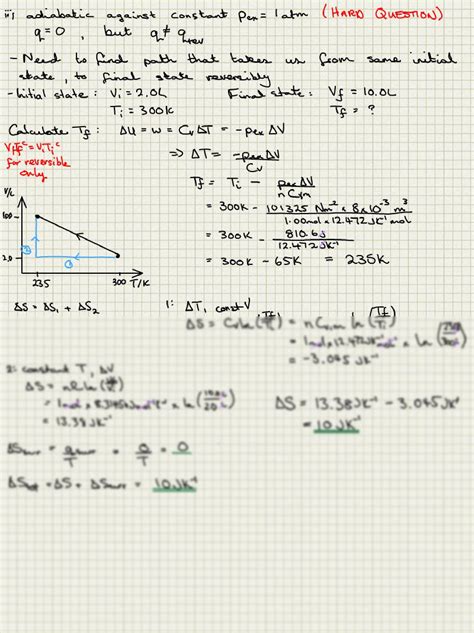 iii, adiabatic against constant pex = 1 atm (HARD QUESTION)
q = 0, but q ≠ qrev
- Need to find path that takes us from same initial
state, to final state reversibly
- Initial state: Vi = 2.0L Final state: Vf = 10.0L
Ti = 300K Tf = ?
Calculate Tf: ΔU = w = CvΔT = -pex ΔV
VfTf^c = ViTi^c
for reversible
only
=> ΔT = -pexΔV / Cv
Tf = Ti - pexΔV / nCv,m
= 300K - 101325 Nm⁻² × 8×10⁻³ m³ / 1.00mol × 12.472JK⁻¹mol
= 300K - 810.6J / 12.472JK⁻¹
= 300K - 65K = 235K
V/L
2.0
235 300 T/K
①
ΔS = ΔS₁ + ΔS₂ 1: ΔT, const V
ΔS = Cv ln(Tf/Ti) = nCv,m ln(Tf/Ti)
= -3.045 JK⁻¹
2: constant T, ΔV
ΔS = 13.38JK⁻¹ - 3.045JK⁻¹
= 13.38JK⁻¹
= 10JK⁻¹
ΔSsur = qsur/T = 0/T = 0
= ΔS + ΔSsur = 10JK⁻¹